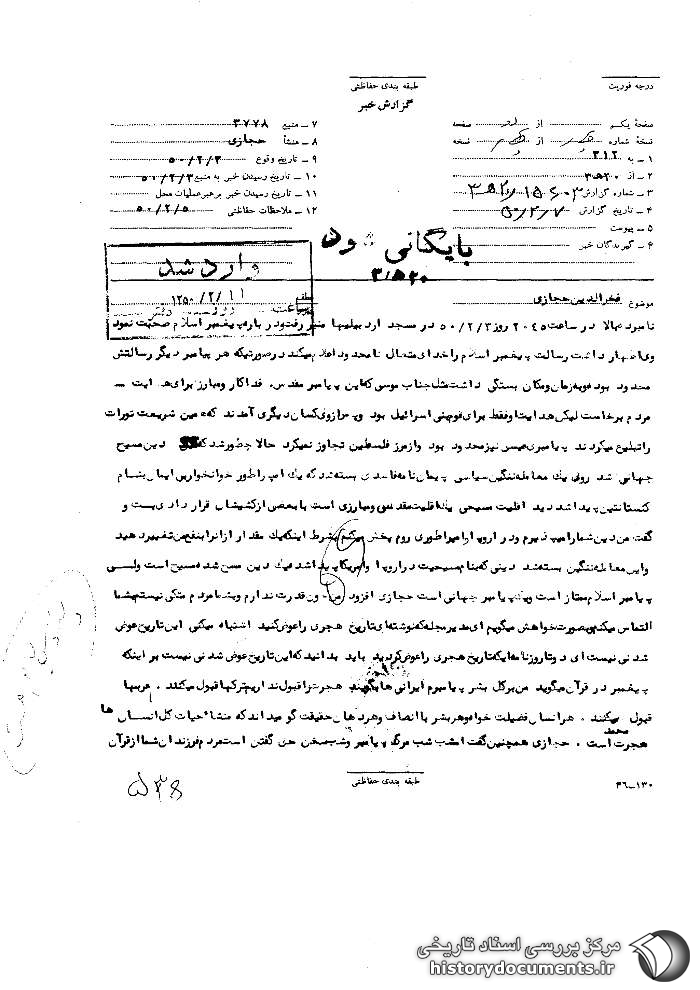 درجه فوریت
طبقه بندی حفاظتی
گزارش خبر
صفحهٔ یکم از صفحه
نسخهٔ شماره از نسخه
۱ ـ به ۳۱۲
۲ ـ از ۳۵۲۰
۳ ـ شماره گزارش
۴ ـ تاریخ گزارش
۵ ـ پیوست
۶ ـ گیرندگان خبر
۷ ـ منبع ۳۷۷۸
۸ ـ منشأ حجازی
۹ ـ تاریخ وقوع ۵۰/۲/۳
۱۰ ـ تاریخ رسیدن خبر به منبع ۵۰/۲/۳
۱۱ ـ تاریخ رسیدن خبر برهبر عملیات محل
۱۲ ـ ملاحظات حفاظتی ۵۰/۲/۵
بایگانی شود
وارد شد
۱۳۵۰/۲/۱۱
موضوع فخرالدین حجازی
نامبرده بالا در ساعت ۲۰۴۵ روز ۵۰/۲/۳ در مسجد اردبیلیها منبر رفت و درباره پیغمبر اسلام صحبت نمود
وی اظهار داشت رسالت پیغمبر اسلام را خدای متعال نامحدود اعلام میکند در صورتیکه هر پیامبر دیگر رسالتش
محدود بود و به زمان و مکان بستگی داشت مثل جناب موسی که این پیامبر مقدس فداکار و مبارز برای هدایت
مردم برخاست لیکن هدایت او فقط برای قوم بنی اسرائیل بود و پس از وی کسان دیگری آمدند که همین شریعت تورات
را تبلیغ میکردند پیامبری عیسی نیز محدود بود و از مرز فلسطین تجاوز نمیکرد حالا چطور شد که دین مسیح
جهانی شد روی یک معامله ننگین سیاسی پیمان نامه فاسدی بسته شد که یک امپراطور خوانخوار بی ایمان بنام
کنستانتین پیدا شد دید اقلیت مسیحی یک اقلیت مقدس و مبارزی است با بعضی از کشیشان قرار دادی بست و
گفت من دین شما را میپذیرم و در اروپا و امپراطوری روم پخش میکنم بشرط اینکه یک مقدار از آنرا بنفع من تغییر دهید
و این معامله ننگین بسته شد دینی که بنام مسیحیت در اروپا و آمریکا پیدا شد یک دین مسخ شده مسیح است ولی
پیامبر اسلام ممتاز است و پیامبر جهانی است حجازی افزود من چون قدرت ندارم و بشما مردم متکی نیستم بشما
التماس میکنم و بصورت خواهش میگویم ای مدیر مجله که نوشته ای تاریخ هجری را عوض کنید اشتباه میکنی این تاریخ عوض
شدنی نیست ای دو تا روزنامه ایکه تاریخ هجری را عوض کردید باید بدانید که این تاریخ عوض شدنی نیست بر اینکه
پیغمبر در قرآن میگوید من بر کل بشر پیامبرم ایرانی ها میگویند هجرت را قبول نداریم ترکها قبول میکنند عربها
قبول میکنند هر انسان فضیلت خواه و هر بشر با انصاف و هر دهان حقیقت گو میداند که منشاء حیات کل انسان ها
هجرت محمد است حجازی همچنین گفت امشب شب مرگ پیامبر و شب سخن حق گفتن است مردم فرزندان شما از قرآن
طبقه بندی حفاظتی
۳۶-۱۳۰
مرکز بررسی اسناد تاریخی
historydocuments.ir